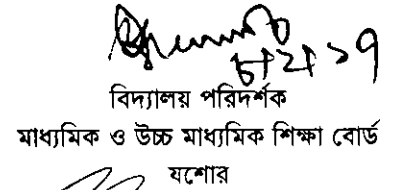 ৮।২।১৭
বিদ্যালয় পরিদর্শক
মাধ্যমিক ও উচ্চ মাধ্যমিক শিক্ষা বোর্ড
যশোর